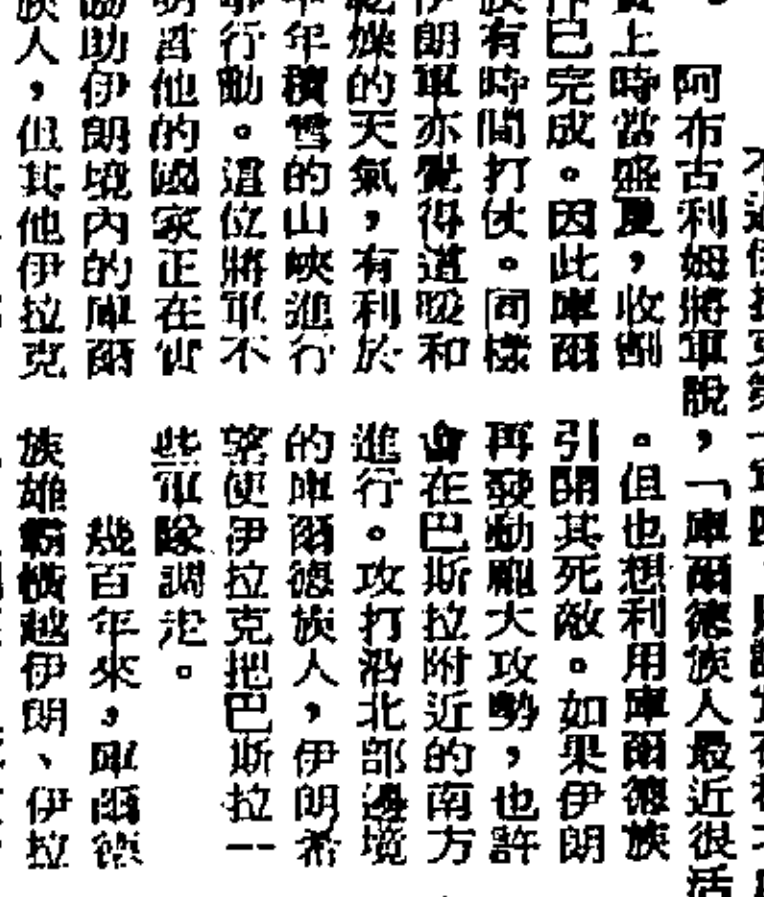 阿布古利姆將軍說，「庫爾德族人最近很活
上時當盛夏，收割
已完成。因此庫爾
族有時間打仗。同樣
伊朗軍亦覺得這暖和
燥的天氣，有利於
年積雪的山峽進行
行動。這位將軍不
他的國家正在
協助伊朗境內的庫爾
族人，但其他伊拉克
。但也想利用庫爾德族
引開其死敵。如果伊朗
再發動龐大攻勢，也許
會在巴斯拉附近的南方
進行。攻打沿北部邊境
的庫爾德族人，伊朗希
望使伊拉克把巴斯拉一
些軍隊調走。
幾百年來，庫爾德
族雄霸橫越伊朗、伊拉